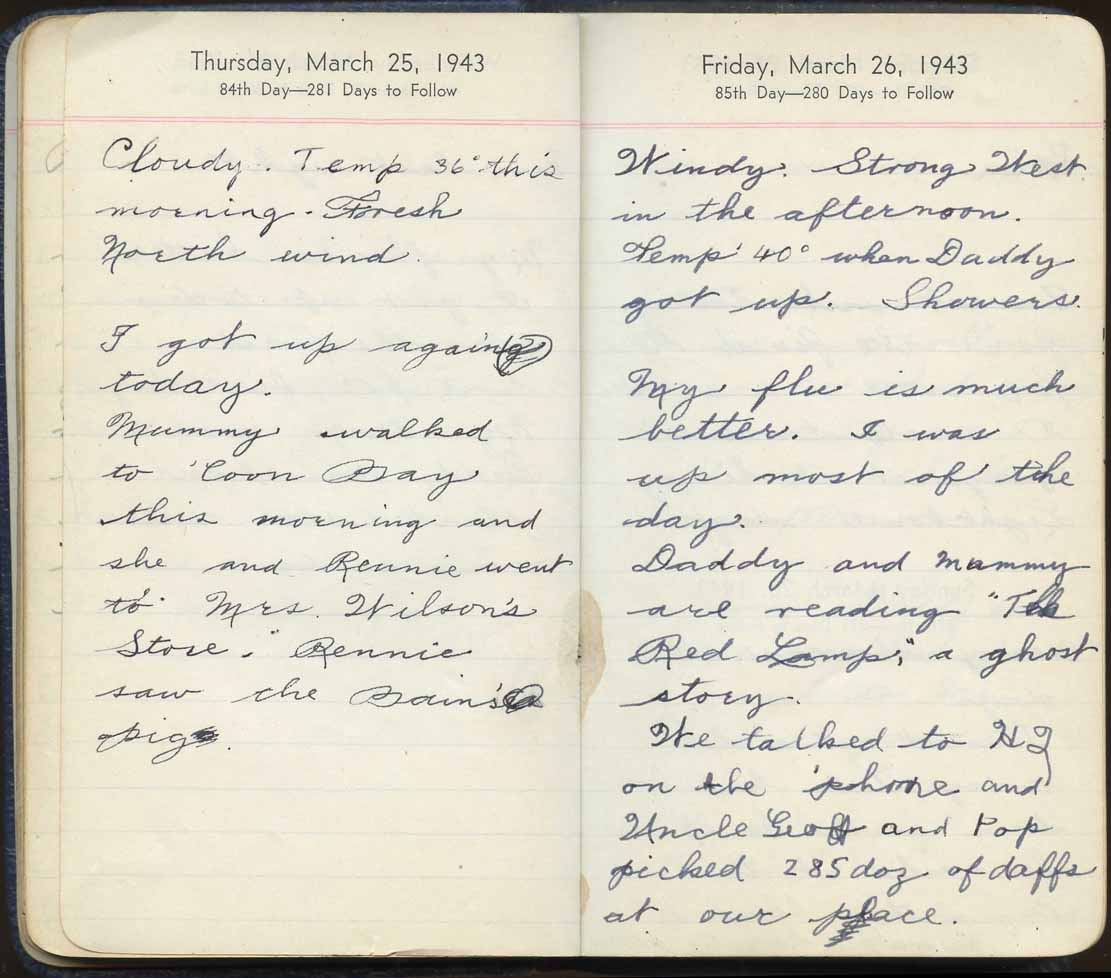 Thursday, March 25, 1943
84th Day—281 Days to Follow
Cloudy. Temp 36° this
morning. Fresh
North wind.
I got up again
today.
Mummy walked
to 'Coon Bay
this morning and
she and Rennie went
to Mrs. Wilson's
Store." Rennie
saw the Bain's
pig.
Friday, March 26, 1943
85th Day—280 Days to Follow
Windy. Strong West
in the afternoon.
Temp' 40° when Daddy
got up. Showers.
My flu is much
better. I was
up most of the
day.
Daddy and Mummy
are reading "The
Red Lamp", a ghost
story.
We talked to
on the 'phone and
Uncle Geoff and Pop
picked 285 doz of daffs
at our place.